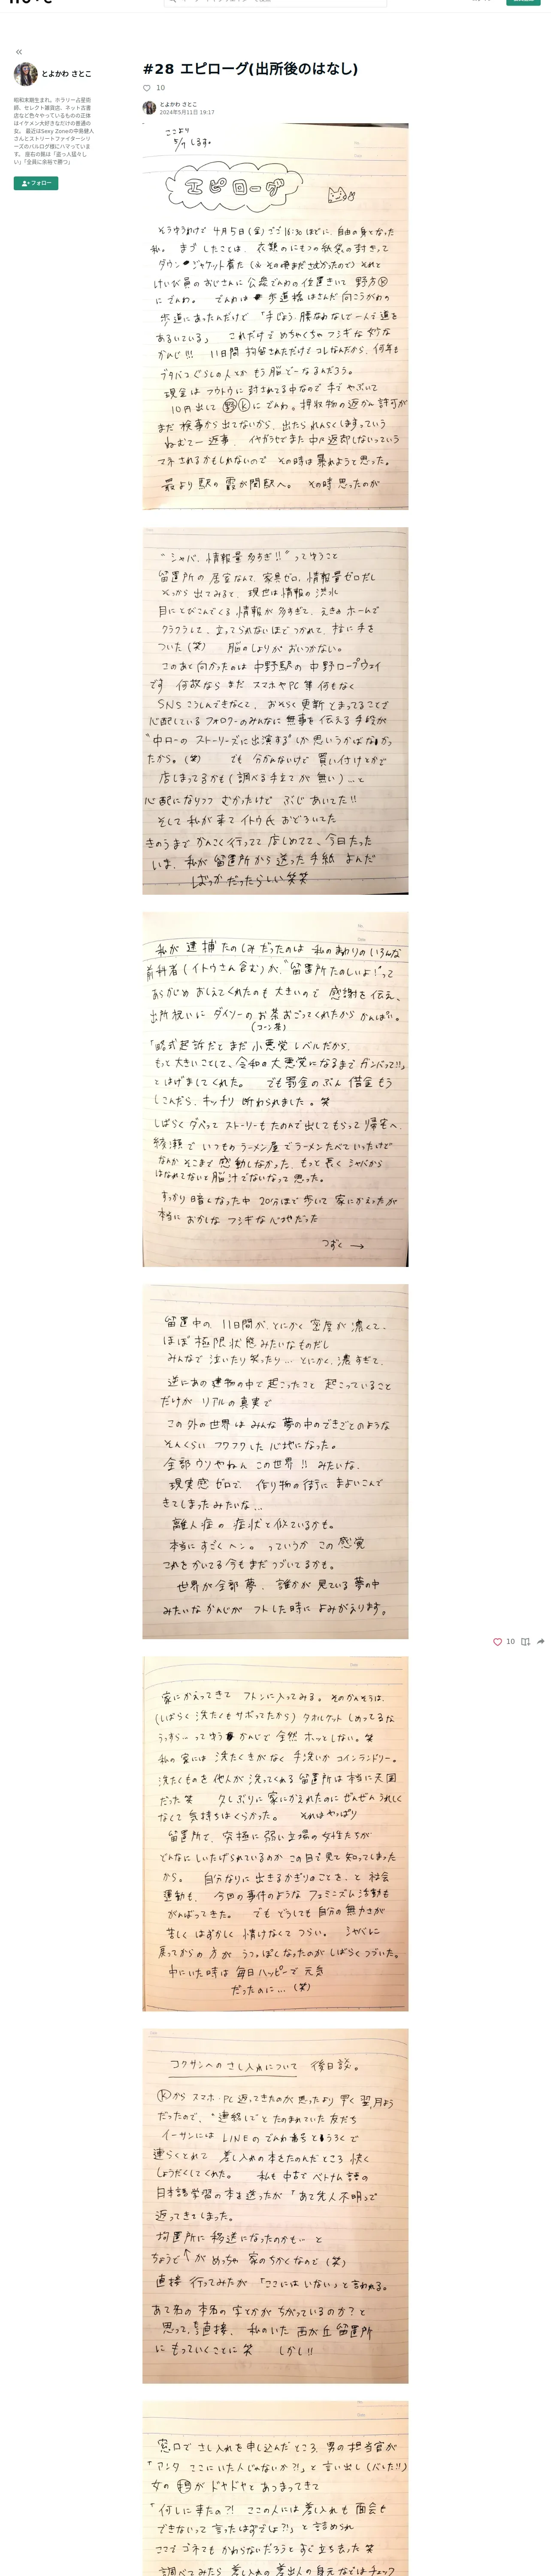 とよかわ さとこ
昭和末期生まれ。ホラリー占星術
師、セレクト雑貨店、ネット古書
店など色々やっているものの正体
はイケメン大好きなだけの普通の
女。最近はSexy Zoneの中島健人
さんとストリートファイターシリ
ーズのバルログ様にハマっていま
す。座右の銘は「盗っ人猛々し
い」「全員に余裕で勝つ」
フォロー
#28 エピローグ(出所後のはなし)
10
とよかわ さとこ
2024年5月11日 19:17
ここより
5/7 しるす。
エピローグ
そうゆうわけで 4月5日(金)ごご16:30ほどに、自由の身となった
私。まずしたことは、衣類のにもつの紙袋の封きって
ダウンジャケット着た(その日まださむかったので)それと
けいび員のおじさんに公衆でんわの位置きいて 野方Ⓚ
にでんわ。 でんわは 歩道橋はさんだ向こうがわの
歩道にあったんだけど 「手じょう・腰なわなしで一人で道を
あるいている」 これだけで めちゃくちゃ フシギな 妙な
かんじ!!! 11日間 拘留されただけで コレなんだから、何年も
ブタバコぐらしの人とか もう脳でーなるんだろう。
現金は フウトウに 封されてる中なので 手で やぶいて
10円出して 野Ⓚにでんわ。押収物の返かん許可が
まだ検事から出てないから、出たられんらくしますっていう
ねむてー返事。 イヤガラセでまた中々返却しないっていう
マネされるかもしれないので その時は暴れようと思った。
最より駅の霞が関駅へ。 その時思ったのが
“シャバ、情報量多すぎ!!”ってゆうこと
留置所の居室なんて、家具ゼロ、情報量ゼロだし
そっから出てみると、現世は情報の洪水
目にとびこんでくる情報が多すぎて、えきのホームで
クラクラして、立ってられないほどつかれて、柱に手を
ついた(笑) 脳のしょりがおいつかない。
このあと向かったのは 中野駅の 中野ロープウェイ
です 何故なら まだ スマホやPC等何もなく
SNSこうしんできなくて、おそらく更新とまってることで
心配しているフォロワーのみんなに無事を伝える手段が
“中ロのストーリーズに出演する”しか思いうかばなかっ
たから。(笑) でも 分かんないけど 買い付けとかで
店しまってるかも(調べる手立てが無い)…と
心配になりつつ むかったけど ぶじ あいてた!!
そして私が来て イトウ氏 おどろいてた
きのうまで かんこく行ってて 店しめてて、今日たった
いま、私が留置所から送った手紙 よんだ
ばっかだったらしい笑笑
私が逮捕たのしみだったのは 私のまわりのいろんな
前科者(イトウさん含む)が、“留置所たのしいよ!”って
あらかじめ おしえてくれたのも 大きいので 感謝を伝え、
出所祝いに ダイソーの お茶おごってくれたから かんぱい。
(コーン茶)
「略式起訴だと まだ 小悪党レベルだから、
もっと大きいことして、令和の大悪党になるまで ガンバって!!」
とはげましてくれた。 でも罰金のぶん 借金もう
しこんだら、キッパリ 断わられました。笑
しばらく ダベって ストーリーも たのんで出してもらって 帰宅へ、
綾瀬で いつもの ラーメン屋でラーメンたべていったけど
なんか そこまで 感動しなかった、もっと 長く シャバから
はなれてないと 脳汁でないなって 思った。
すっかり暗くなった中 20分ほど歩いて 家にかえったが
本当に おかしな フシギな心地だった
つづく→
留置中の、11日間が、とにかく密度が濃くて、
ほぼ 極限状態みたいなものだし
みんなで泣いたり笑ったり…とにかく、濃すぎて、
逆にあの建物の中で起こったこと 起こっていること
だけが リアルの真実で
この外の世界は みんな 夢の中のできごとのような
そんくらい フワフワした 心地になった。
全部 ウソやねん この世界!! みたいな、
現実感ゼロで、 作り物の街に まよいこんで
きてしまったみたいな…
離人症の症状と似ているかも。
本当に すごく ヘン。 っていうか この感覚
これをかいてる今も まだ つづいてるかも。
世界が全部 夢、 誰かが 見ている 夢の中
みたいなかんじが フトした時に よみがえります。
家にかえってきて フトンに入ってみる。そのかんそうは、
(しばらく洗たくもサボってたから) タオルケット しめってるな
うっすら…ってゆう かんじで 全然 ホッとしない。笑
私の家には 洗たくきがなく 手洗いか コインランドリー。
洗たくものを 他人が洗ってくれる 留置所は 本当に天国
だった笑 久しぶりに 家にかえれたのに ぜんぜん うれしく
なくて 気持ちは くらかった。 それはやっぱり
留置所で、究極に弱い立場の女性たちが
どんなに しいたげられているのか この目で見て 知ってしまった
から。 自分なりに 出きるかぎりのことを、と 社会
運動も、 今回の事件のような フェミニズム活動も
がんばってきた。 でも どうしても 自分の無力さが
苦しく はずかしく 情けなくて つらい。 シャバに
戻ってからの方が うつっぽくなったのが しばらくつづいた。
中にいた時は 毎日ハッピーで 元気
だったのに…(笑)
コクサンへの さし入れについて 後日談。
Ⓚから スマホ・PC返ってきたのが 思ったより 早く 翌月よう
だったので、“連絡して”と たのまれていた 友だち
イーサンには LINEの でんわ番号とうろくで
連らくとれて 差し入れの本をたのんだところ 快く
しょうだくしてくれた。 私も 中古で ベトナム語の
日本語学習の本を送ったが 「あて先人不明」で
返ってきてしまった。
拘置所に 移送になったのかも… と
ちょうど↑が めっちゃ 家のちかくなので(笑)
直接 行ってみたが 「ここには いない」と言われる。
あて名の 本名の字とかが ちがっているのか? と
思って、直接、 私のいた 西が丘留置所
に もっていくことに笑 しかし!!
窓口で さし入れを申し込んだところ、男の担当官が
「アンタ ここにいた人じゃないか?!」と言い出し(バレた!!)
女の 担が ドヤドヤと あつまってきて
「何しに来たの?! ここの人には差し入れも 面会も
できないって 言ったはずでしょ?!」と詰められ
ここで ゴネても かわらないだろうと すぐ 立ち去った笑
調べてみたら 差し入れの差出人の身元などはチェック
10